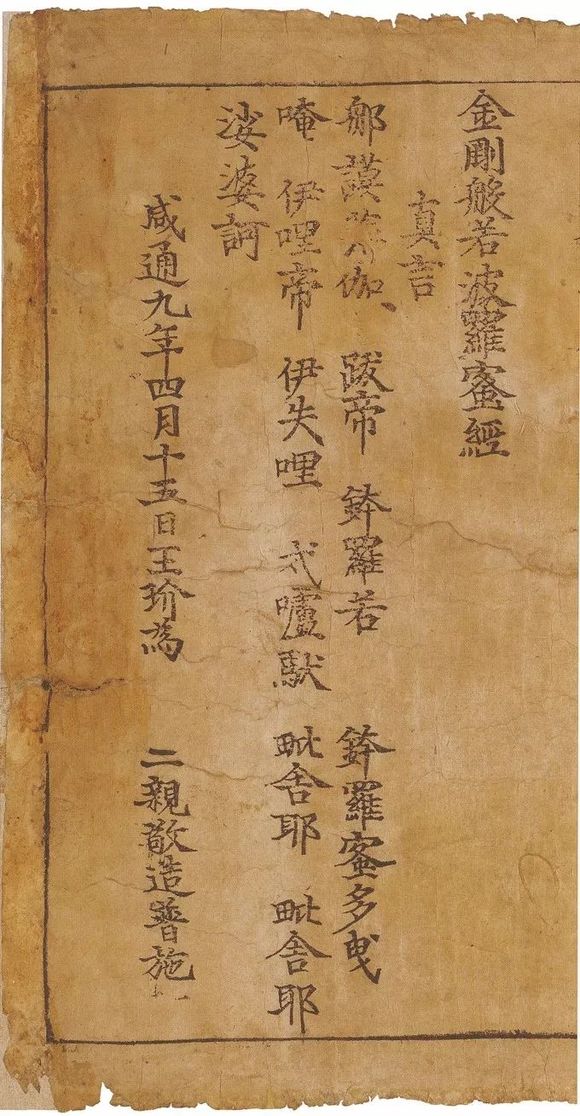 金剛般若波羅蜜經
真言
那謨薄伽、 跋帝 鉢羅若 鉢羅蜜多曳
唵 伊哩帝 伊失哩 戍嚧馱 毗舍耶 毗舍耶
娑婆訶
咸通九年四月十五日王玠為 二親敬造普施